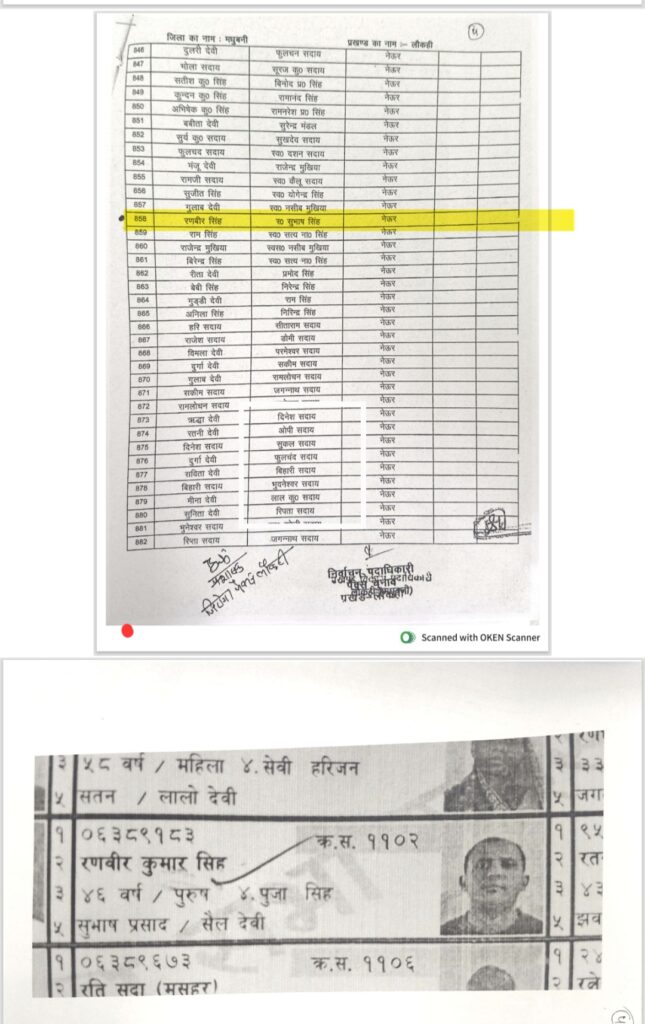 जिला का नाम : मधुबनी प्रखण्ड का नाम :- लौकही
846 दुलरी देवी फुलचन सदाय नेऊर
847 भोला सदाय सूरज कु0 सदाय नेऊर
848 सतीश कु0 सिंह बिनोद प्र0 सिंह नेऊर
849 कुन्दन कु0 सिंह रामानंद सिंह नेऊर
850 अभिषेक कु0 सिंह रामनरेश प्र0 सिंह नेऊर
851 बबीता देवी सुरेन्द्र मंडल नेऊर
852 सुर्य कु0 सदाय सुखदेव सदाय नेऊर
853 फुलचद सदाय स्व0 दशन सदाय नेऊर
854 मंजू देवी राजेन्द्र मुखिया नेऊर
855 रामजी सदाय स्व0 कैलू सदाय नेऊर
856 सुजीत सिंह स्व0 योगेन्द्र सिंह नेऊर
857 गुलाब देवी स्व0 नसीब मुखिया नेऊर
858 रणबीर सिंह स0 सुभाष सिंह नेऊर
859 राम सिंह स्व0 सत्य ना0 सिंह नेऊर
860 राजेन्द्र मुखिया स्वस0 नसीब मुखिया नेऊर
861 बिरेन्द्र सिंह स्व0 सत्य ना0 सिंह नेऊर
862 रीता देवी प्रमोद सिंह नेऊर
863 बेबी सिंह निरेन्द्र सिंह नेऊर
864 गुड्डी देवी राम सिंह नेऊर
865 अनिला सिंह निरिन्द्र सिंह नेऊर
866 हरि सदाय सीताराम सदाय नेऊर
867 राजेश सदाय डोमी सदाय नेऊर
868 विमला देवी परमेश्वर सदाय नेऊर
869 दुर्गा देवी सकीम सदाय नेऊर
870 गुलाब देवी रामलोचन सदाय नेऊर
871 सकीम सदाय जगन्नाथ सदाय नेऊर
872 रामलोचन सदाय नेऊर
873 ऋद्धा देवी दिनेश सदाय नेऊर
874 रतनी देवी ओपी सदाय नेऊर
875 दिनेश सदाय सुकल सदाय नेऊर
876 दुर्गा देवी फुलचंद सदाय नेऊर
877 सविता देवी बिहारी सदाय नेऊर
878 बिहारी सदाय भुवनेश्वर सदाय नेऊर
879 मीना देवी लाल कु0 सदाय नेऊर
880 सुनिता देवी रिपता सदाय नेऊर
881 भुनेश्वर सदाय नेऊर
882 रिप्ता सदाय जगन्नाथ सदाय नेऊर
निर्वाचन पदाधिकारी
पैक्स चुनाव
प्रखण्ड-लौकही
Scanned with OKEN Scanner
३ ५८ वर्ष / महिला ४. सेवी हरिजन ३ ३३
५ सतन / लालो देवी ५ जग
१ ०६३८९१८३ क्र.स. ११०२ १ ९५
२ रणवीर कुमार सिंह २ रत
३ ४६ वर्ष / पुरुष ४. पुजा सिंह ३ ४३
५ सुभाष प्रसाद / सैल देवी ५ झव
१ ०६३८९६७३ क्र.स. ११०६ १ २४
२ रति सदा (मुसहर) २